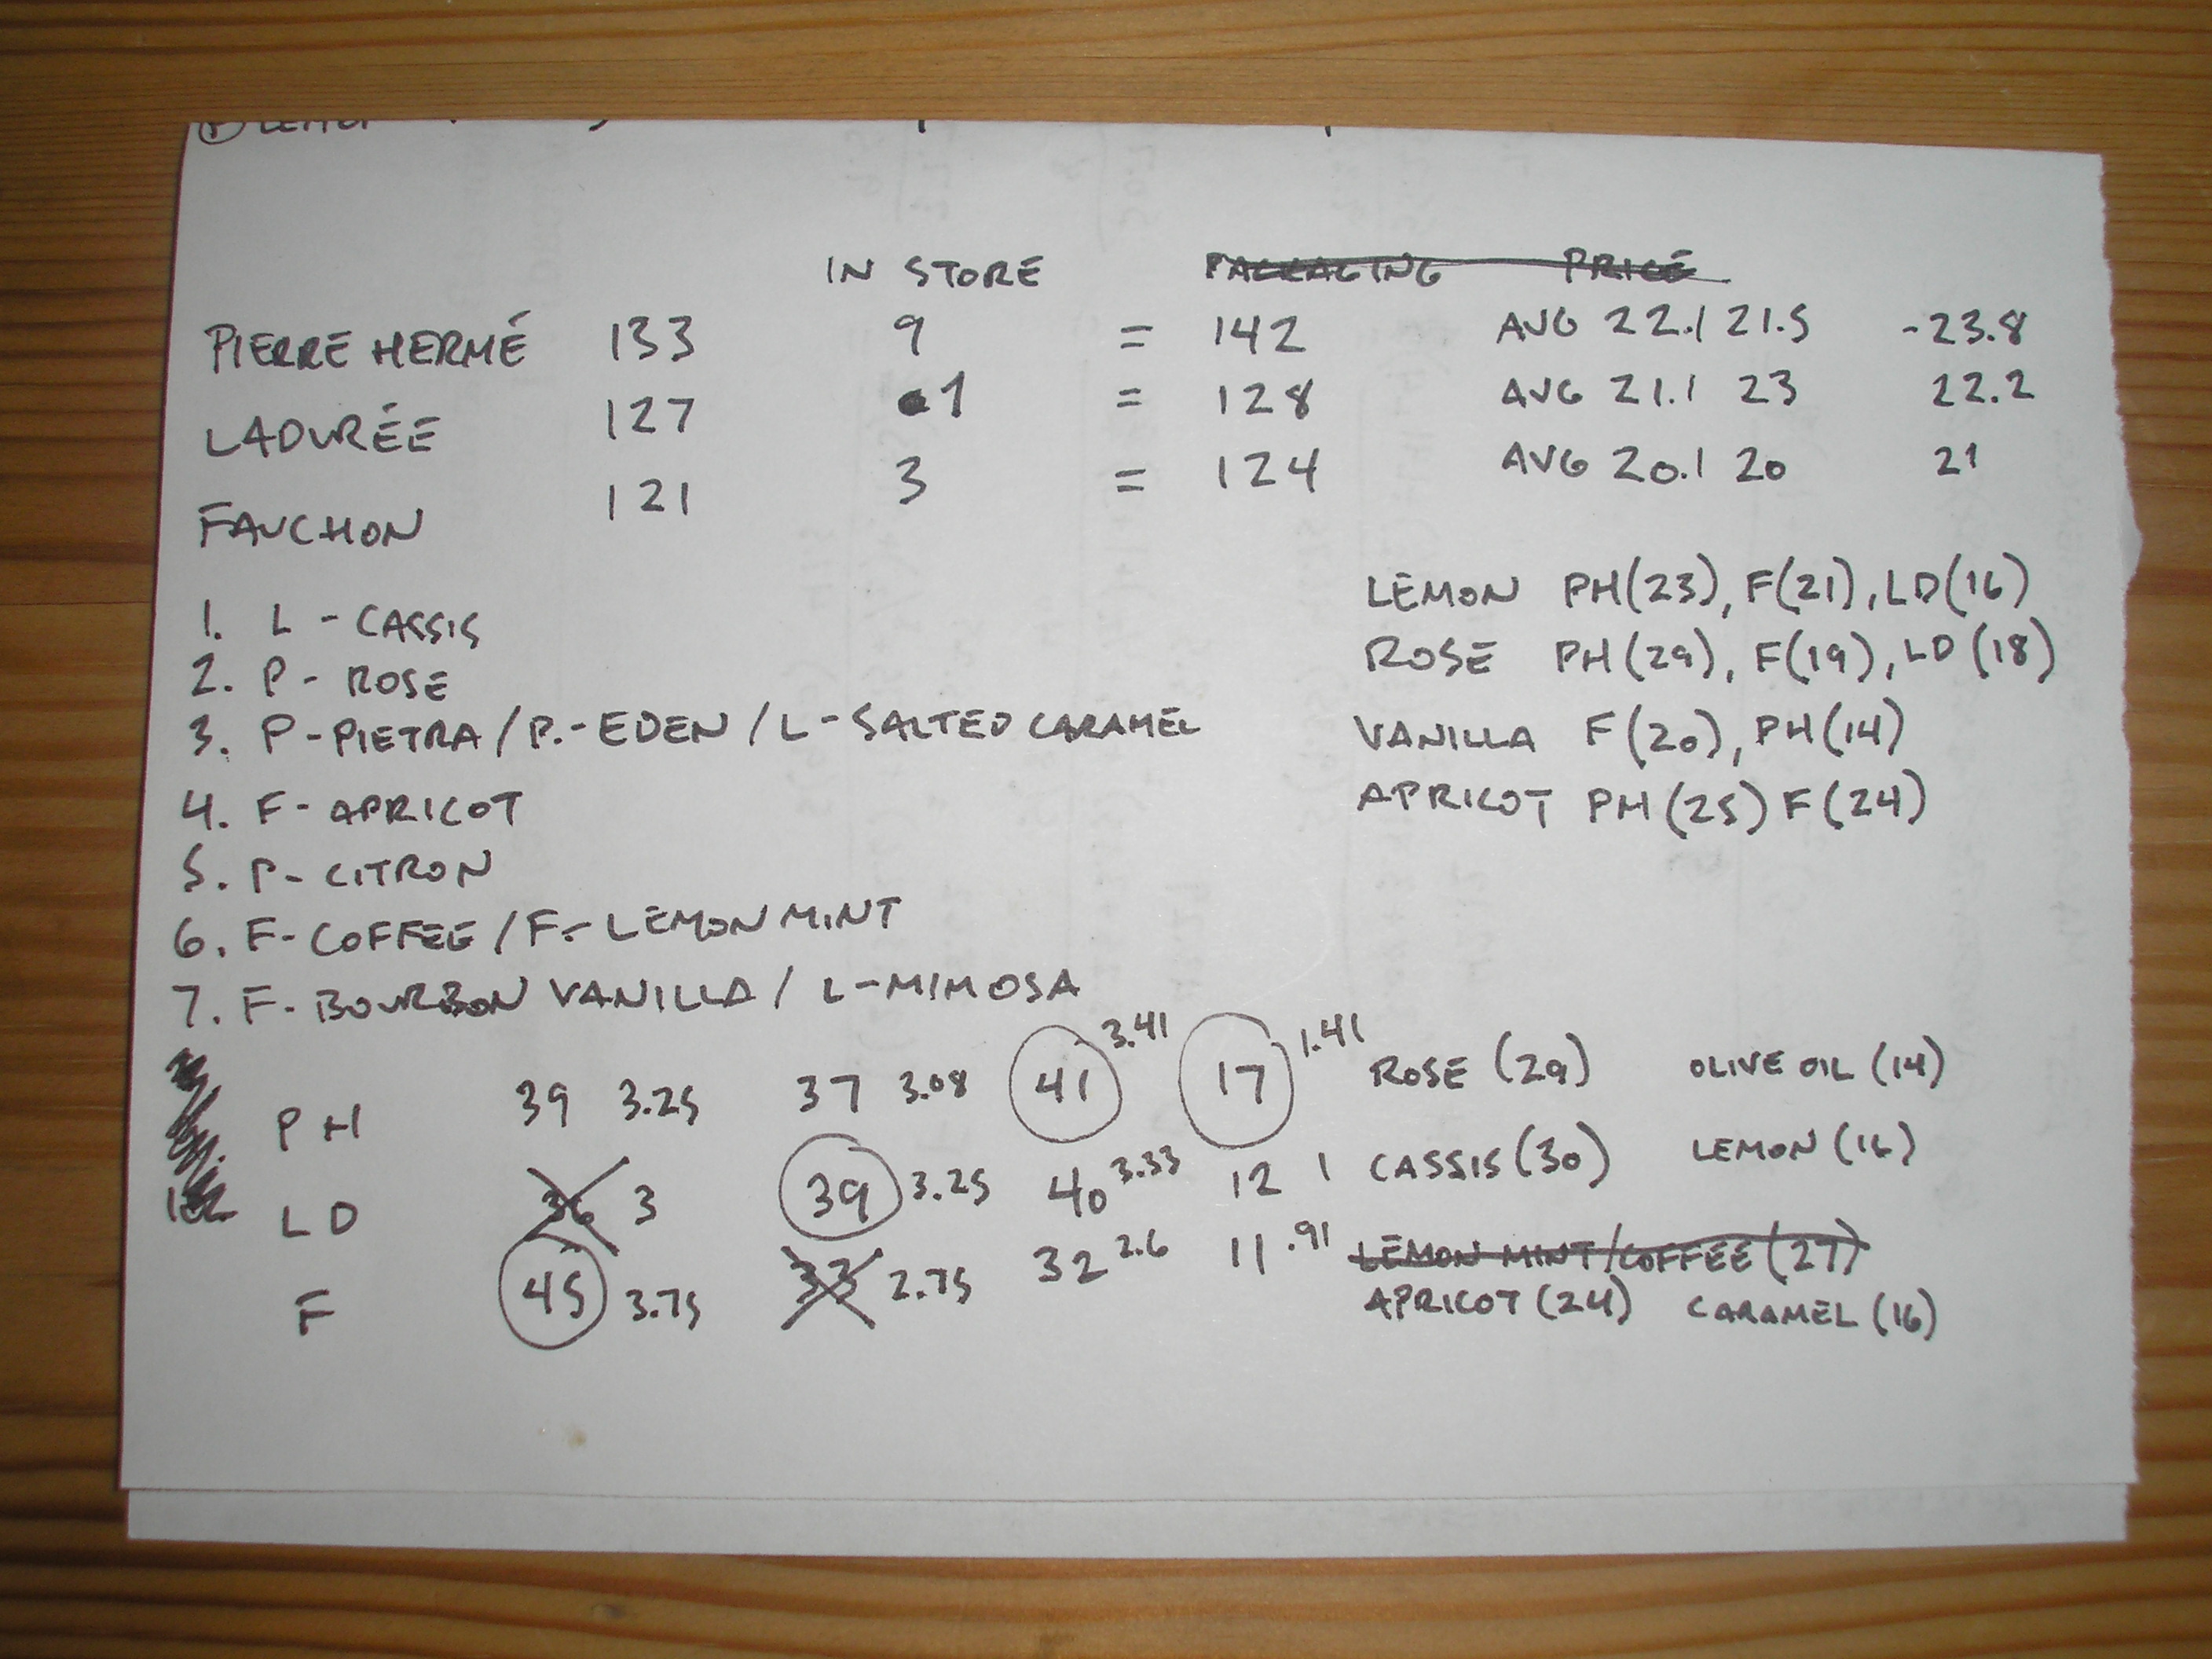 IN STORE PACKAGING PRICE
PIERRE HERMÉ 133 9 = 142 AVG 22.1 21.5 -23.8
LADURÉE 127 1 = 128 AVG 21.1 23 22.2
FAUCHON 121 3 = 124 AVG 20.1 20 21
LEMON PH(23), F(21), LD(16)
ROSE PH(29), F(19), LD(18)
VANILLA F(20), PH(14)
APRICOT PH(25) F(24)
1. L - CASSIS
2. P - ROSE
3. P-PIETRA / P.-EDEN / L-SALTED CARAMEL
4. F-APRICOT
5. P-CITRON
6. F-COFFEE / F.-LEMON MINT
7. F-BOURBON VANILLA / L-MIMOSA
PH 39 3.25 37 3.08 41 3.41 17 1.41 ROSE (29) OLIVE OIL (14)
LD 36 3 39 3.25 40 3.33 12 1 CASSIS (30) LEMON (16)
F 45 3.75 33 2.75 32 2.6 11 .91 LEMON MINT/COFFEE (27)
APRICOT (24) CARAMEL (16)